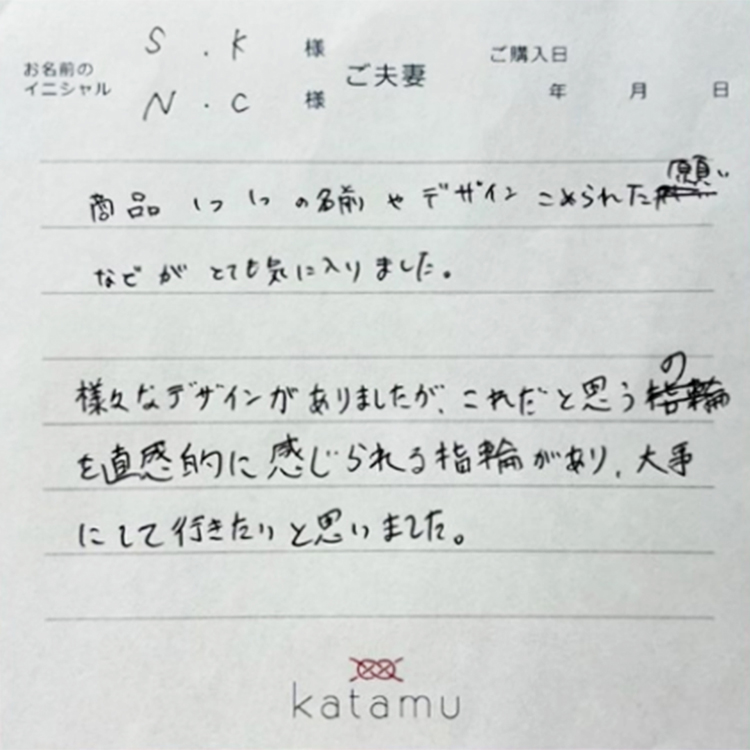 お名前の
イニシャル
S . K 様
N . C 様
ご夫妻
ご購入日
年 月 日
商品 1つ1つの名前やデザイン こめられた願い
などが とても気に入りました。
様々なデザインがありましたが、これだと思うの
を直感的に感じられる指輪があり、大事
にして行きたいと思いました。
katamu